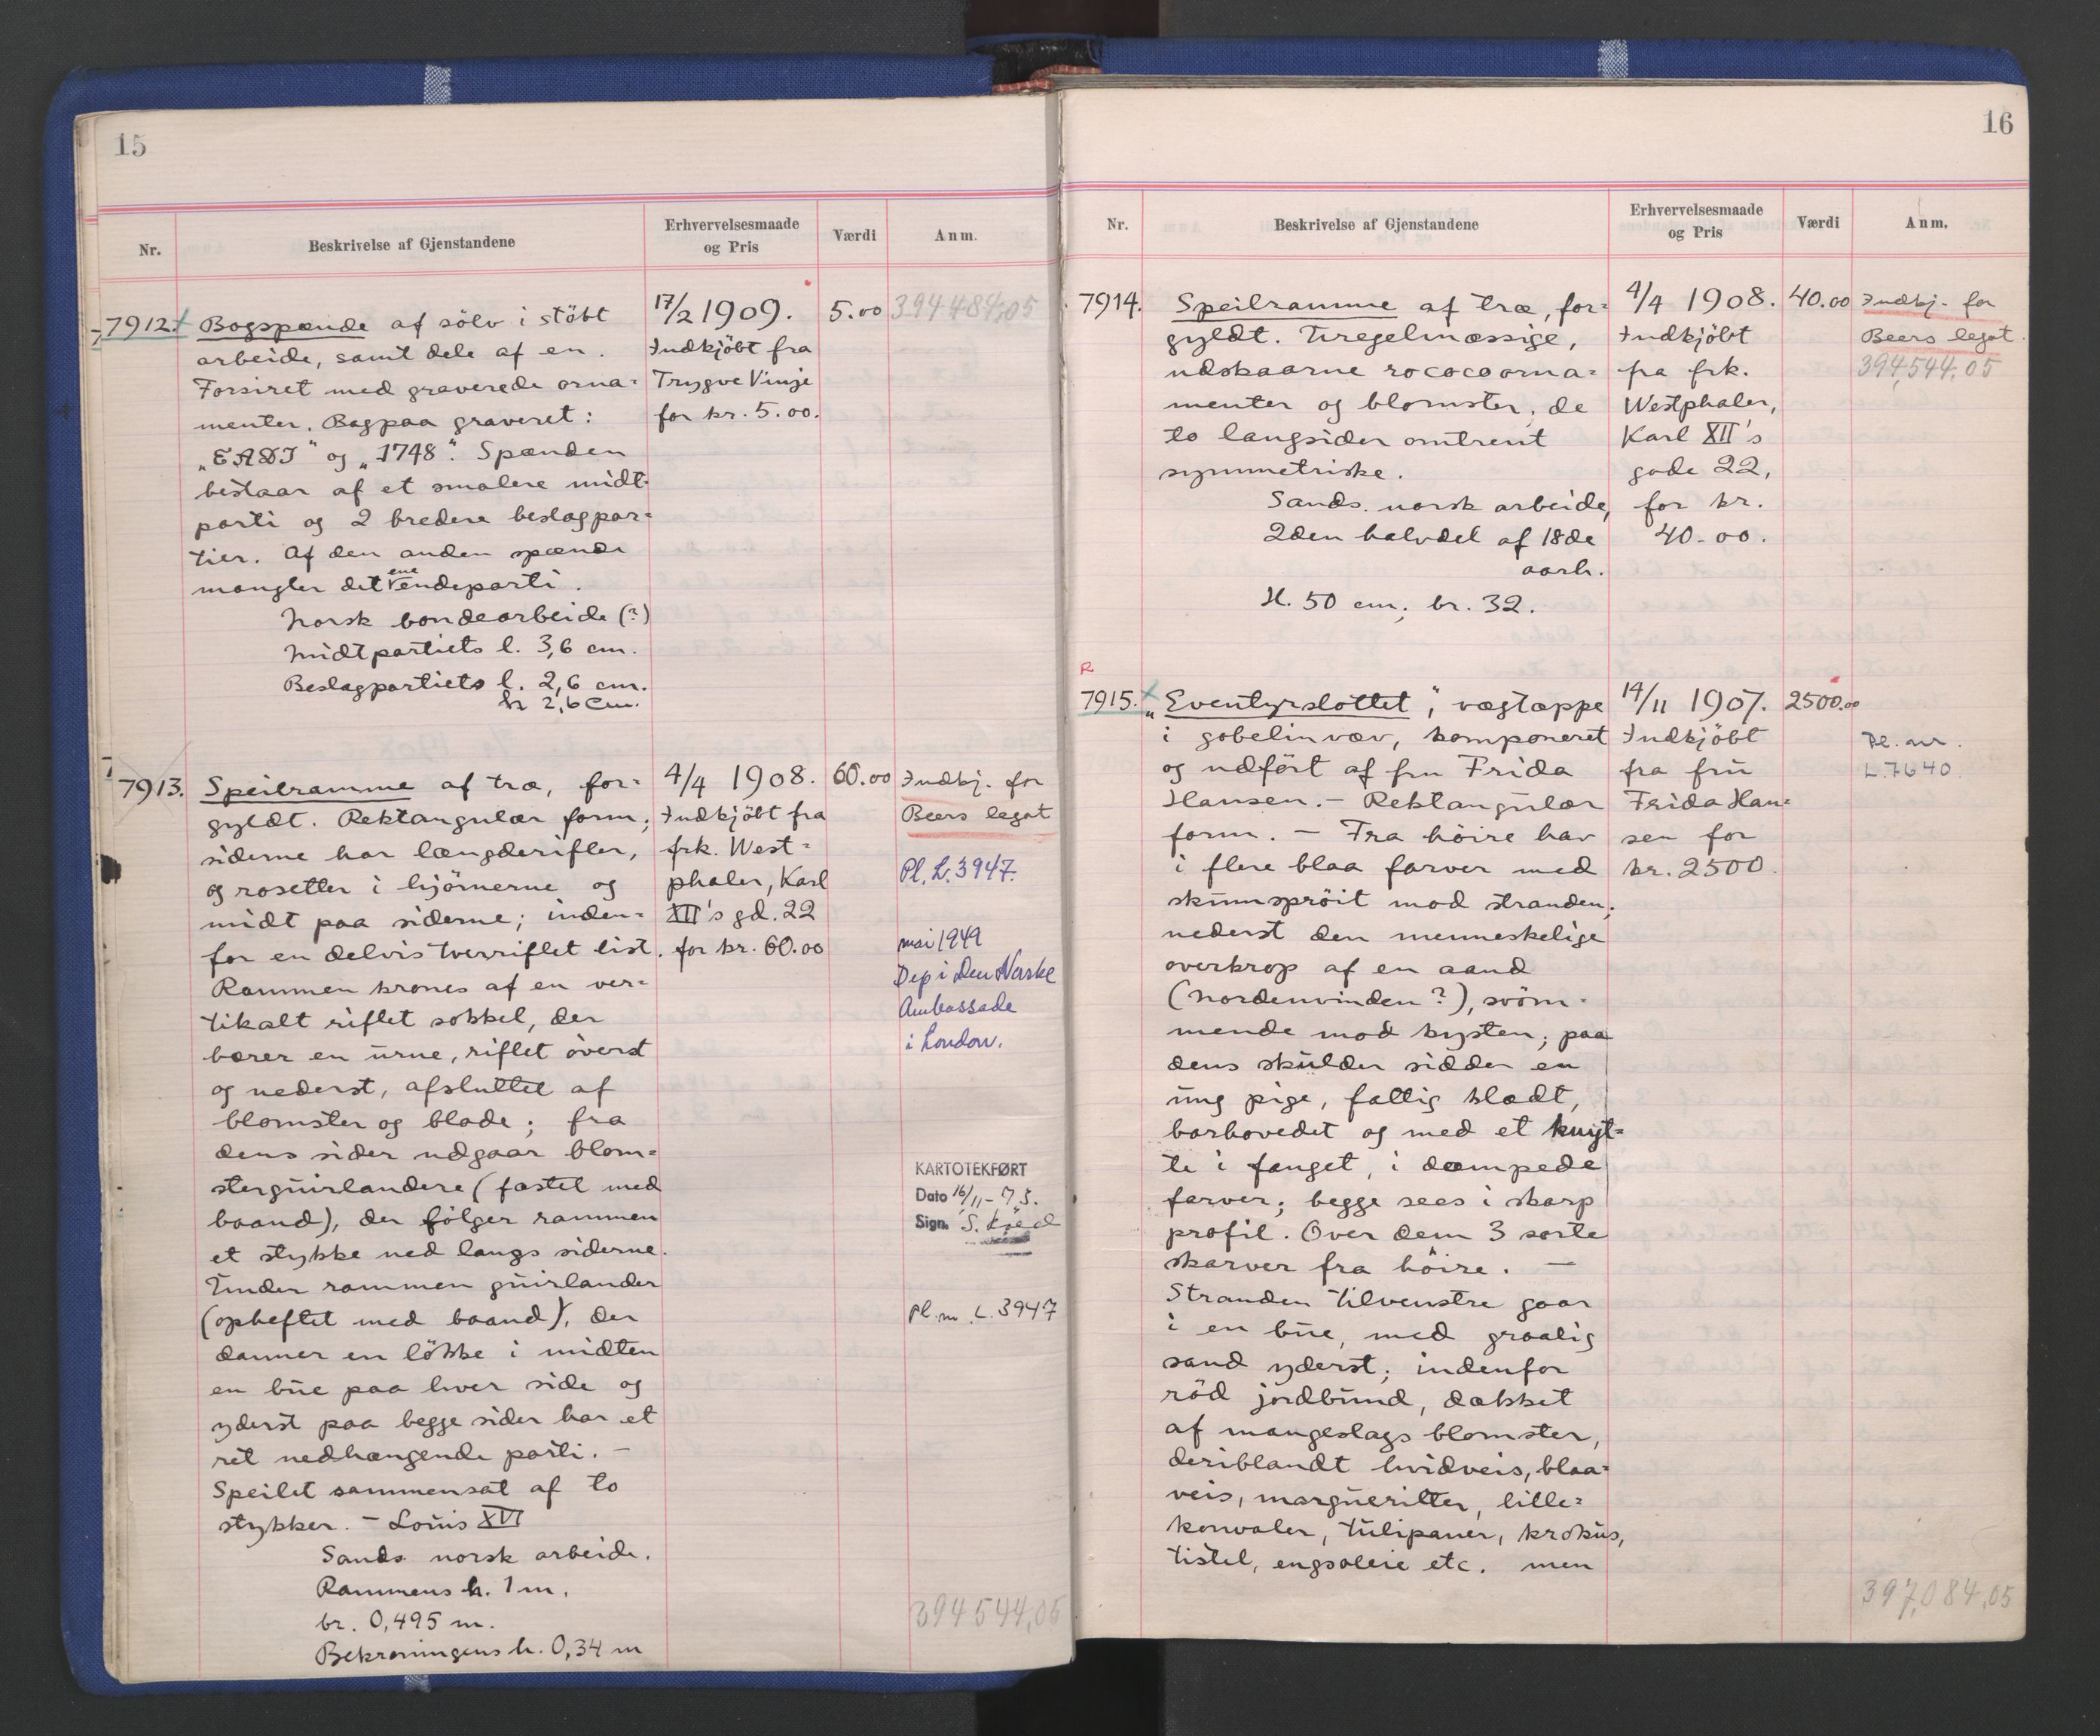 15
Nr.
Beskrivelse af Gjenstandene
Erhvervelsesmaade
og Pris
Værdi
Anm.
7912.
Bogspænde af sölv i stöbt
arbeide, samt dele af en.
Forsiret med graverede orna=
menter. Bagpaa graveret:
„EADI" og „1748". Spænden
bestaar af et smalere midt-
parti og 2 bredere beslagpar=
tier. Af den anden spænde
mangler det ene endeparti.
Norsk bondearbeide (?)
Midtpartiets l. 3,6 cm.
Beslagpartiets l. 2,6 cm.
h 2,6 cm.
17/2 1909.
Indkjöbt fra
Trygve Vinje
for kr. 5.00.
5.00
394484,05
7913.
Speilramme af træ, for-
gyldt. Rektangulær form;
siderne har længderifler,
og rosetter i hjörnerne og
midt paa siderne; inden=
for en delvis tverriflet list.
Rammen krones af en ver=
tikalt riflet sokkel, der
bærer en urne, riflet överst
og nederst, afsluttet af
blomster og blade; fra
dens sider udgaar blom=
sterguirlandere (fæstet med
baand), der fölger rammen
et stykke ned langs siderne.
Under rammen guirlander
(opheftet med baand), der
danner en lökke i midten
en bue paa hver side og
yderst paa begge sider har et
ret nedhængende parti. —
Speilet sammensat af to
stykker. — Louis XVI
Sands. norsk arbeide.
Rammens h. 1 m.
br. 0,495 m.
Bekroningens h. 0,34 m
4/4 1908.
Indkjöbt fra
frk. West=
phaler, Karl
XII's gd. 22
for kr. 60.00
60.00
Indkj. for
Beers legat
Pl. L. 3947.
mai 1949
Dep i Den Norske
Ambassade
i London.
KARTOTEKFØRT
Dato 16/11-73.
Sign. S.
Pl. nr. L. 3947
394544,05
16
Nr.
Beskrivelse af Gjenstandene
Erhvervelsesmaade
og Pris
Værdi
Anm.
7914.
Speilramme af træ, for=
gyldt. Uregelmæssige,
udskaarne rococoorna=
menter og blomster; de
to langsider omtrent
symmetriske.
Sands. norsk arbeide,
2den halvdel af 18de
aarh.
H. 50 cm; br. 32.
4/4 1908.
Indkjöbt
fra frk.
Westphaler,
Karl XII's
gade 22,
for kr.
40.00.
40.00
Indkj. for
Beers legat.
394,544.05
R
7915.
„Eventyrslottet", vægtæppe
i gobelinvæv, komponeret
og udfört af fru Frida
Hansen. — Rektangulær
form. — Fra höire hav
i flere blaa farver med
skumspröit mod stranden;
nederst den menneskelige
overkrop af en aand
(Nordenvinden?), svöm-
mende mod kysten; paa
dens skulder sidder en
ung pige, fattig klædt,
barhovedet og med et knyt=
te i fanget, i dæmpede
farver; begge sees i skarp
profil. Over dem 3 sorte
skarver fra höire. —
Stranden tilvenstre gaar
i en bue, med graalig
sand yderst; indenfor
röd jordbund, dækket
af mangeslags blomster,
deriblandt hvidveis, blaa=
veis, margueritter, lille=
konvaler, tulipaner, krokus,
tistel, engsoleie etc. men
14/11 1907.
Indkjöbt
fra fru
Frida Han=
sen for
kr. 2500.
2500.00
Pl. nr.
L. 7640.
397,084,05